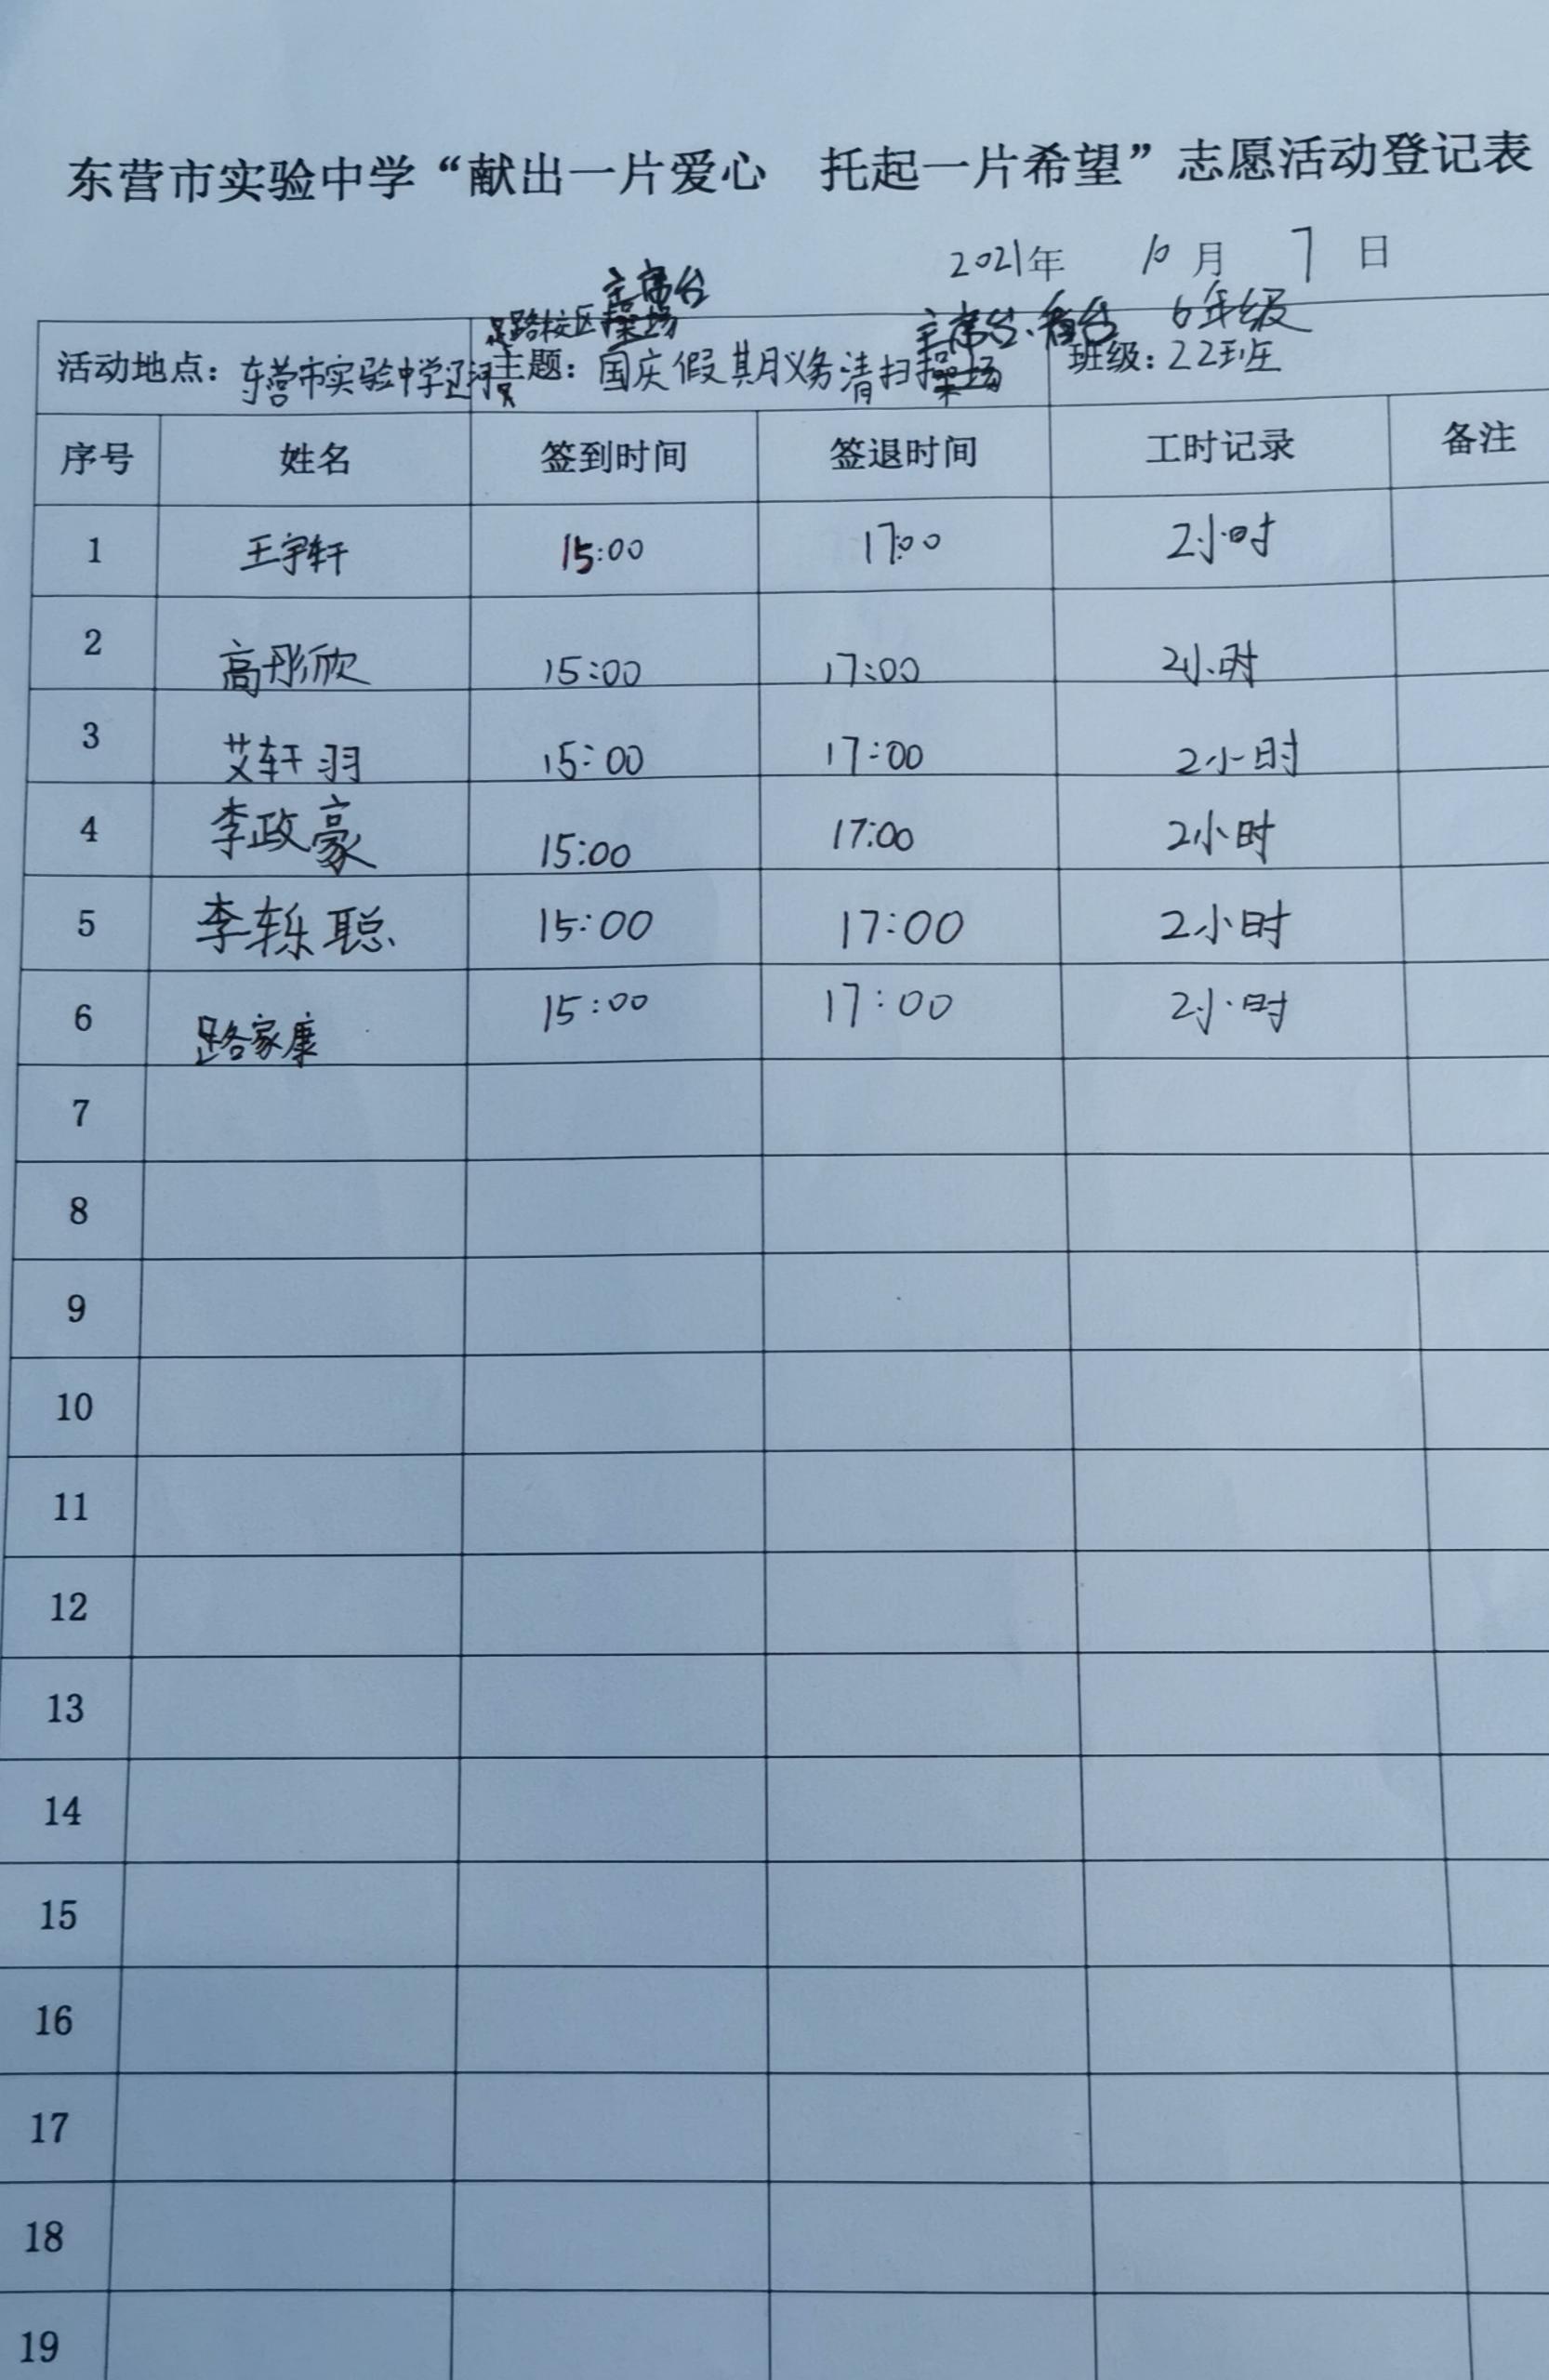 东营市实验中学“献出一片爱心 托起一片希望”志愿活动登记表
2021年 10月 7日
主席台
路校区操场 主席台、看台 6年级
活动地点：东营市实验中学辽河 主题：国庆假期义务清扫操场 班级：22班
序号 姓名 签到时间 签退时间 工时记录 备注
1 王宇轩 15:00 17:00 2小时
2 高彤欣 15:00 17:00 2小时
3 艾轩羽 15:00 17:00 2小时
4 李政豪 15:00 17:00 2小时
5 李轹聪 15:00 17:00 2小时
6 路家康 15:00 17:00 2小时
7
8
9
10
11
12
13
14
15
16
17
18
19